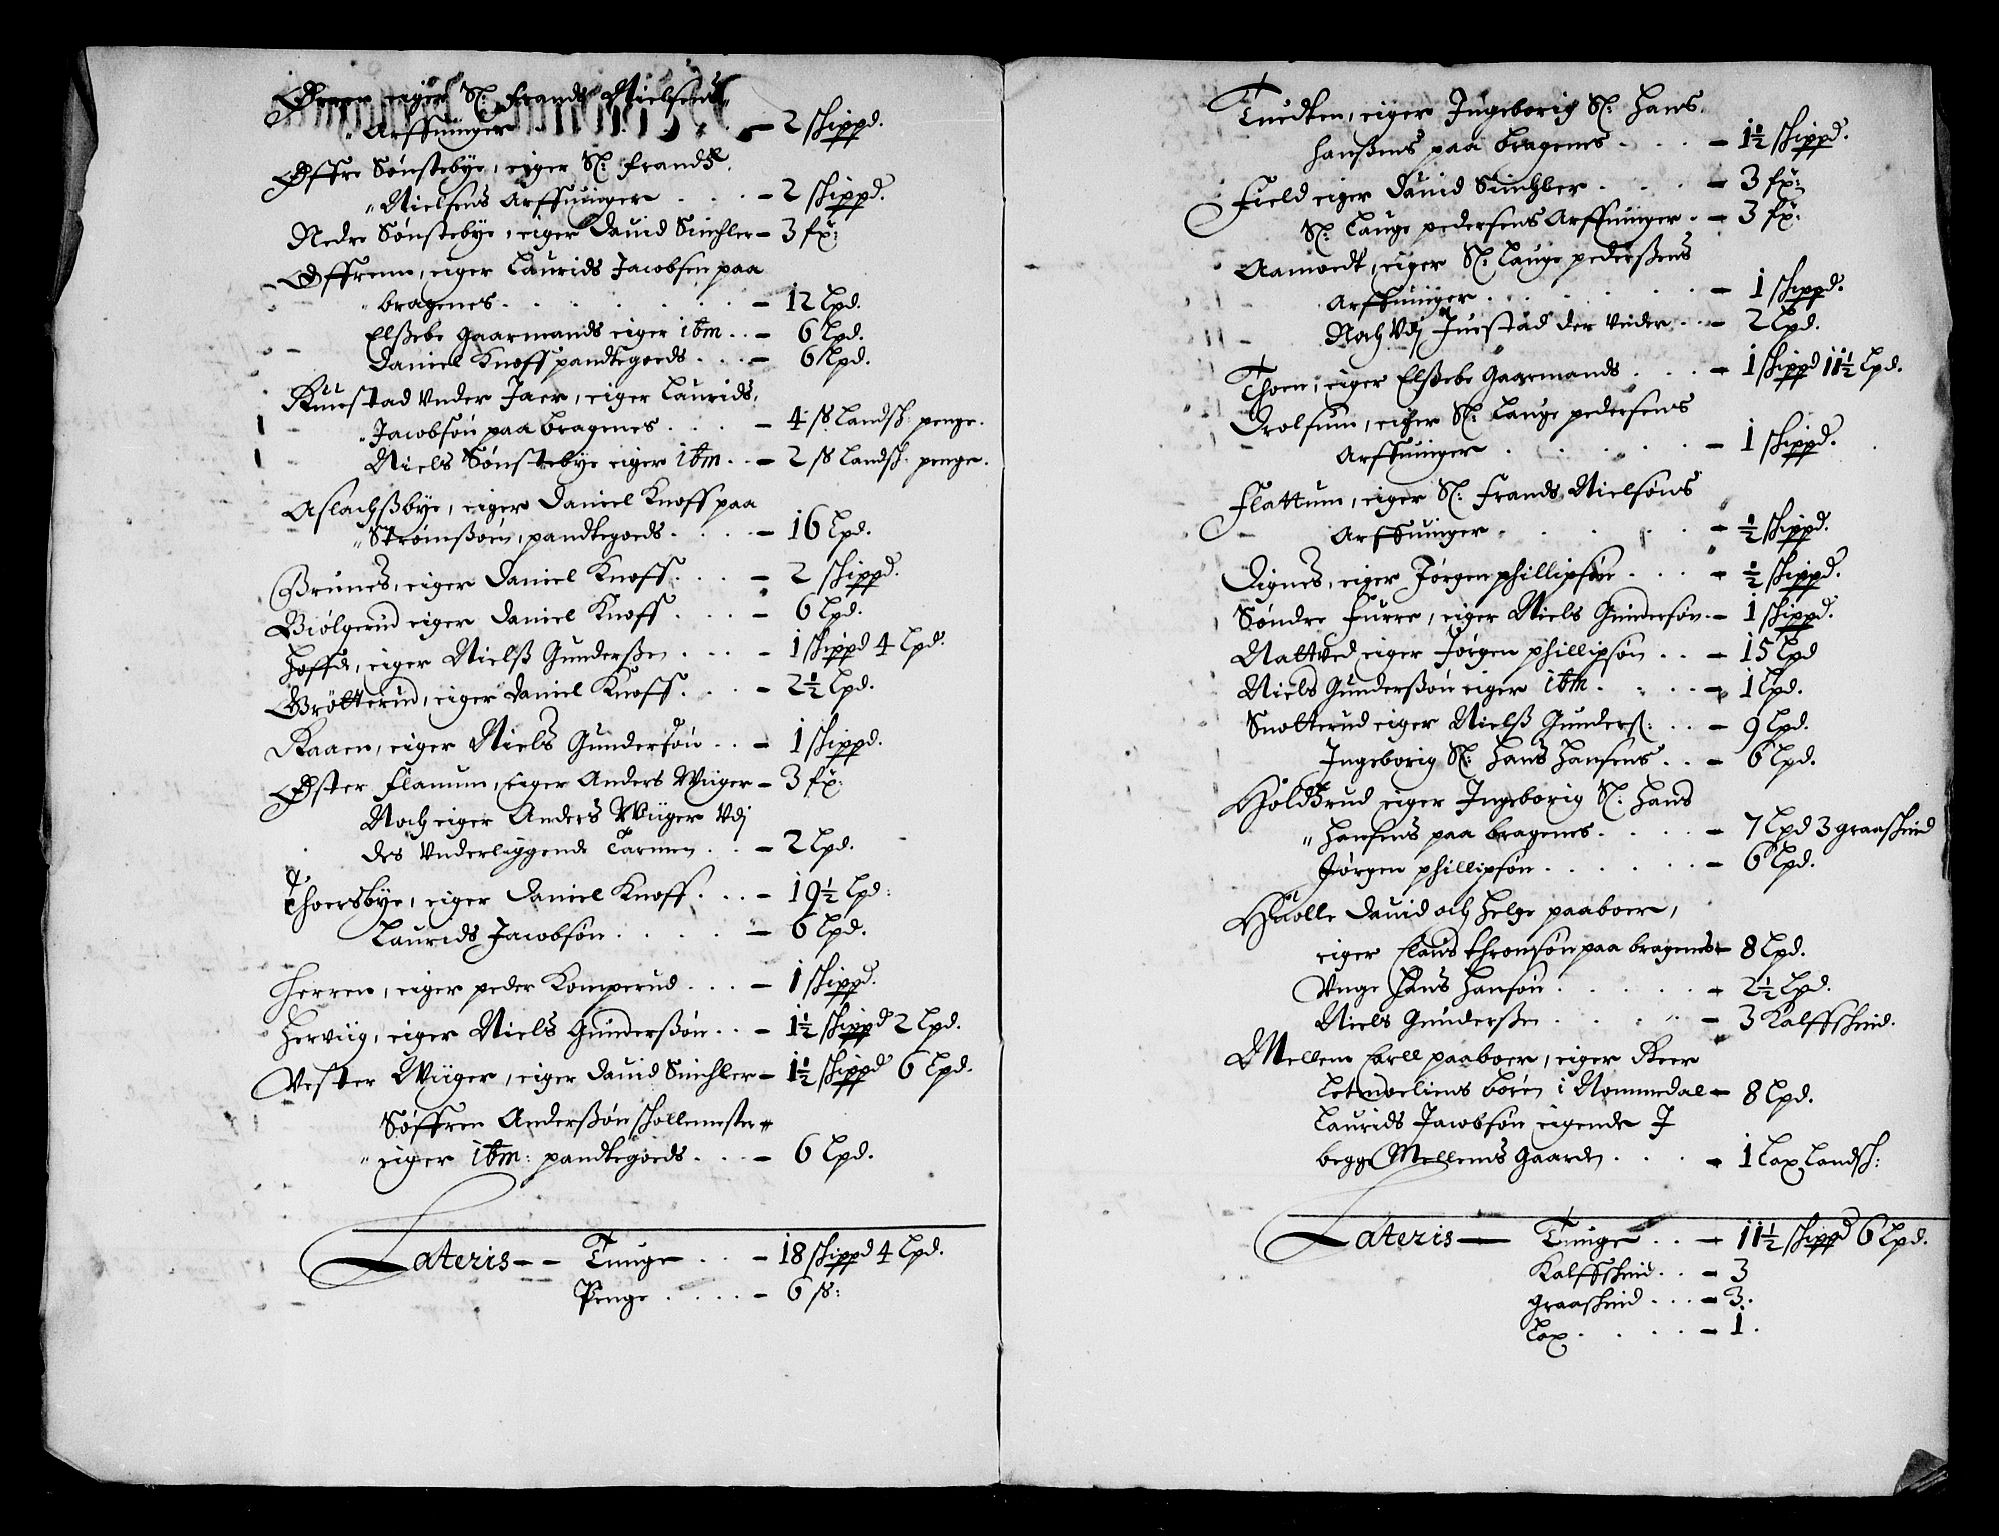 eiger Sl: Frands Nielsens
Arffuinger - 2 skippd.
Øffre Sønstebye, eiger Sl: Frands
Nielsens Arffuinger - 2 skippd.
Nedre Sønstebye, eiger Dauid Sinchler - 3 fx:
Offrenn, eiger Laurids Jacobsen paa
bragenes - 12 Lpd.
Elssebe Gaarmands eiger ibm - 6 Lpd.
Daniel Knoff pandtegoeds - 6 Lpd.
Ruustad Vnder Jaer, eiger Laurids
Jacobsøn paa bragenes - 4 ß Landsk: penge.
Niels Sønstebye eiger ibm - 2 ß Landsk: penge.
Aslachsbye, eiger Daniel Knoff paa
Strømssøen, pandtegoeds - 16 Lpd.
Brunes, eiger Daniel Knoff - 2 skippd.
Biølgerud eiger Daniel Knoff - 6 Lpd.
Hoffde, eiger Nielß Gunderßen - 1 skippd 4 Lpd.
Brøtterud, eiger Daniel Knoff - 2½ Lpd.
Kaaen, eiger Niels Gundersøn - 1 skippd.
Øster Flanum, eiger Anders Wiiger - 3 fx:
Noch eiger Anders Wiiger Vdj
des Vnderliggende Tarmen - 2 Lpd.
Thoersbye, eiger Daniel Knoff - 19½ Lpd:
Laurids Jacobsøn - 6 Lpd.
Herren, eiger peder Komperud - 1 skippd.
Herviig, eiger Niels Gunderßøn - 1½ skippd 2 Lpd.
Vester Wiiger, eiger Dauid Sinchler - 1½ skippd 6 Lpd.
Søffren Anderßøn skollemester
eiger ibm: pandtegoeds - 6 Lpd.
Lateris - - Tunge - 18 skippd 4 Lpd.
Penge - 6 ß:
Tuedten, eiger Ingeborig Sl: Hans
Hanßens paa bragenes - 1½ skippd.
Field eiger Dauid Sinchler - 3 fx:
Sl: Lauge pedersens Arffuinger - 3 fx:
Aamoedt, eiger Sl: Lauge pederßens
Arffuinger - 1 skippd.
Noch Vdj Juestad der Vnder - 2 Lpd.
Thoen, eiger Elssebe Gaarmands - 1 skippd 11½ Lpd.
Drolsum, eiger Sl: Lauge pedersens
Arffuinger - 1 skippd.
Flattum, eiger Sl: Frands Nielsøns
Arffuinger - ½ skippd.
Dignes, eiger Jørgen phillipsøn - ½ skippd.
Søndre Furre, eiger Niels Gundersøn - 1 skippd.
Nattved eiger Jørgen phillipsøn - 15 Lpd
Niels Gunderßøn eiger ibm - 1 Lpd.
Snotterud eiger Nielß Gunderß: - 9 Lpd.
Ingeborig Sl: Hans Hansens - 6 Lpd.
Holdßrud eiger Ingeborig Sl: Hans
Hansens paa bragenes - 7 Lpd 3 graaskind
Jørgen phillipsøn - 6 Lpd.
Huolle Dauid och Helge paaboer,
eiger Claus thronsøn paa bragenes - 8 Lpd.
Vnge Hans Hansøn - 2½ Lpd.
Niels Gunderßen - 3 Kalffskind.
Mellem Carll paaboer, eiger Keer
Letmoeliens børn i Nommedal - 8 Lpd.
Laurids Jacobsøn eigende J
begge Mellems Gaarde - 1 Lax Landsk:
Lateris - Tunge - 11½ skippd 6 Lpd.
Kalffskind - 3
graaskind - 3.
Lax - 1.